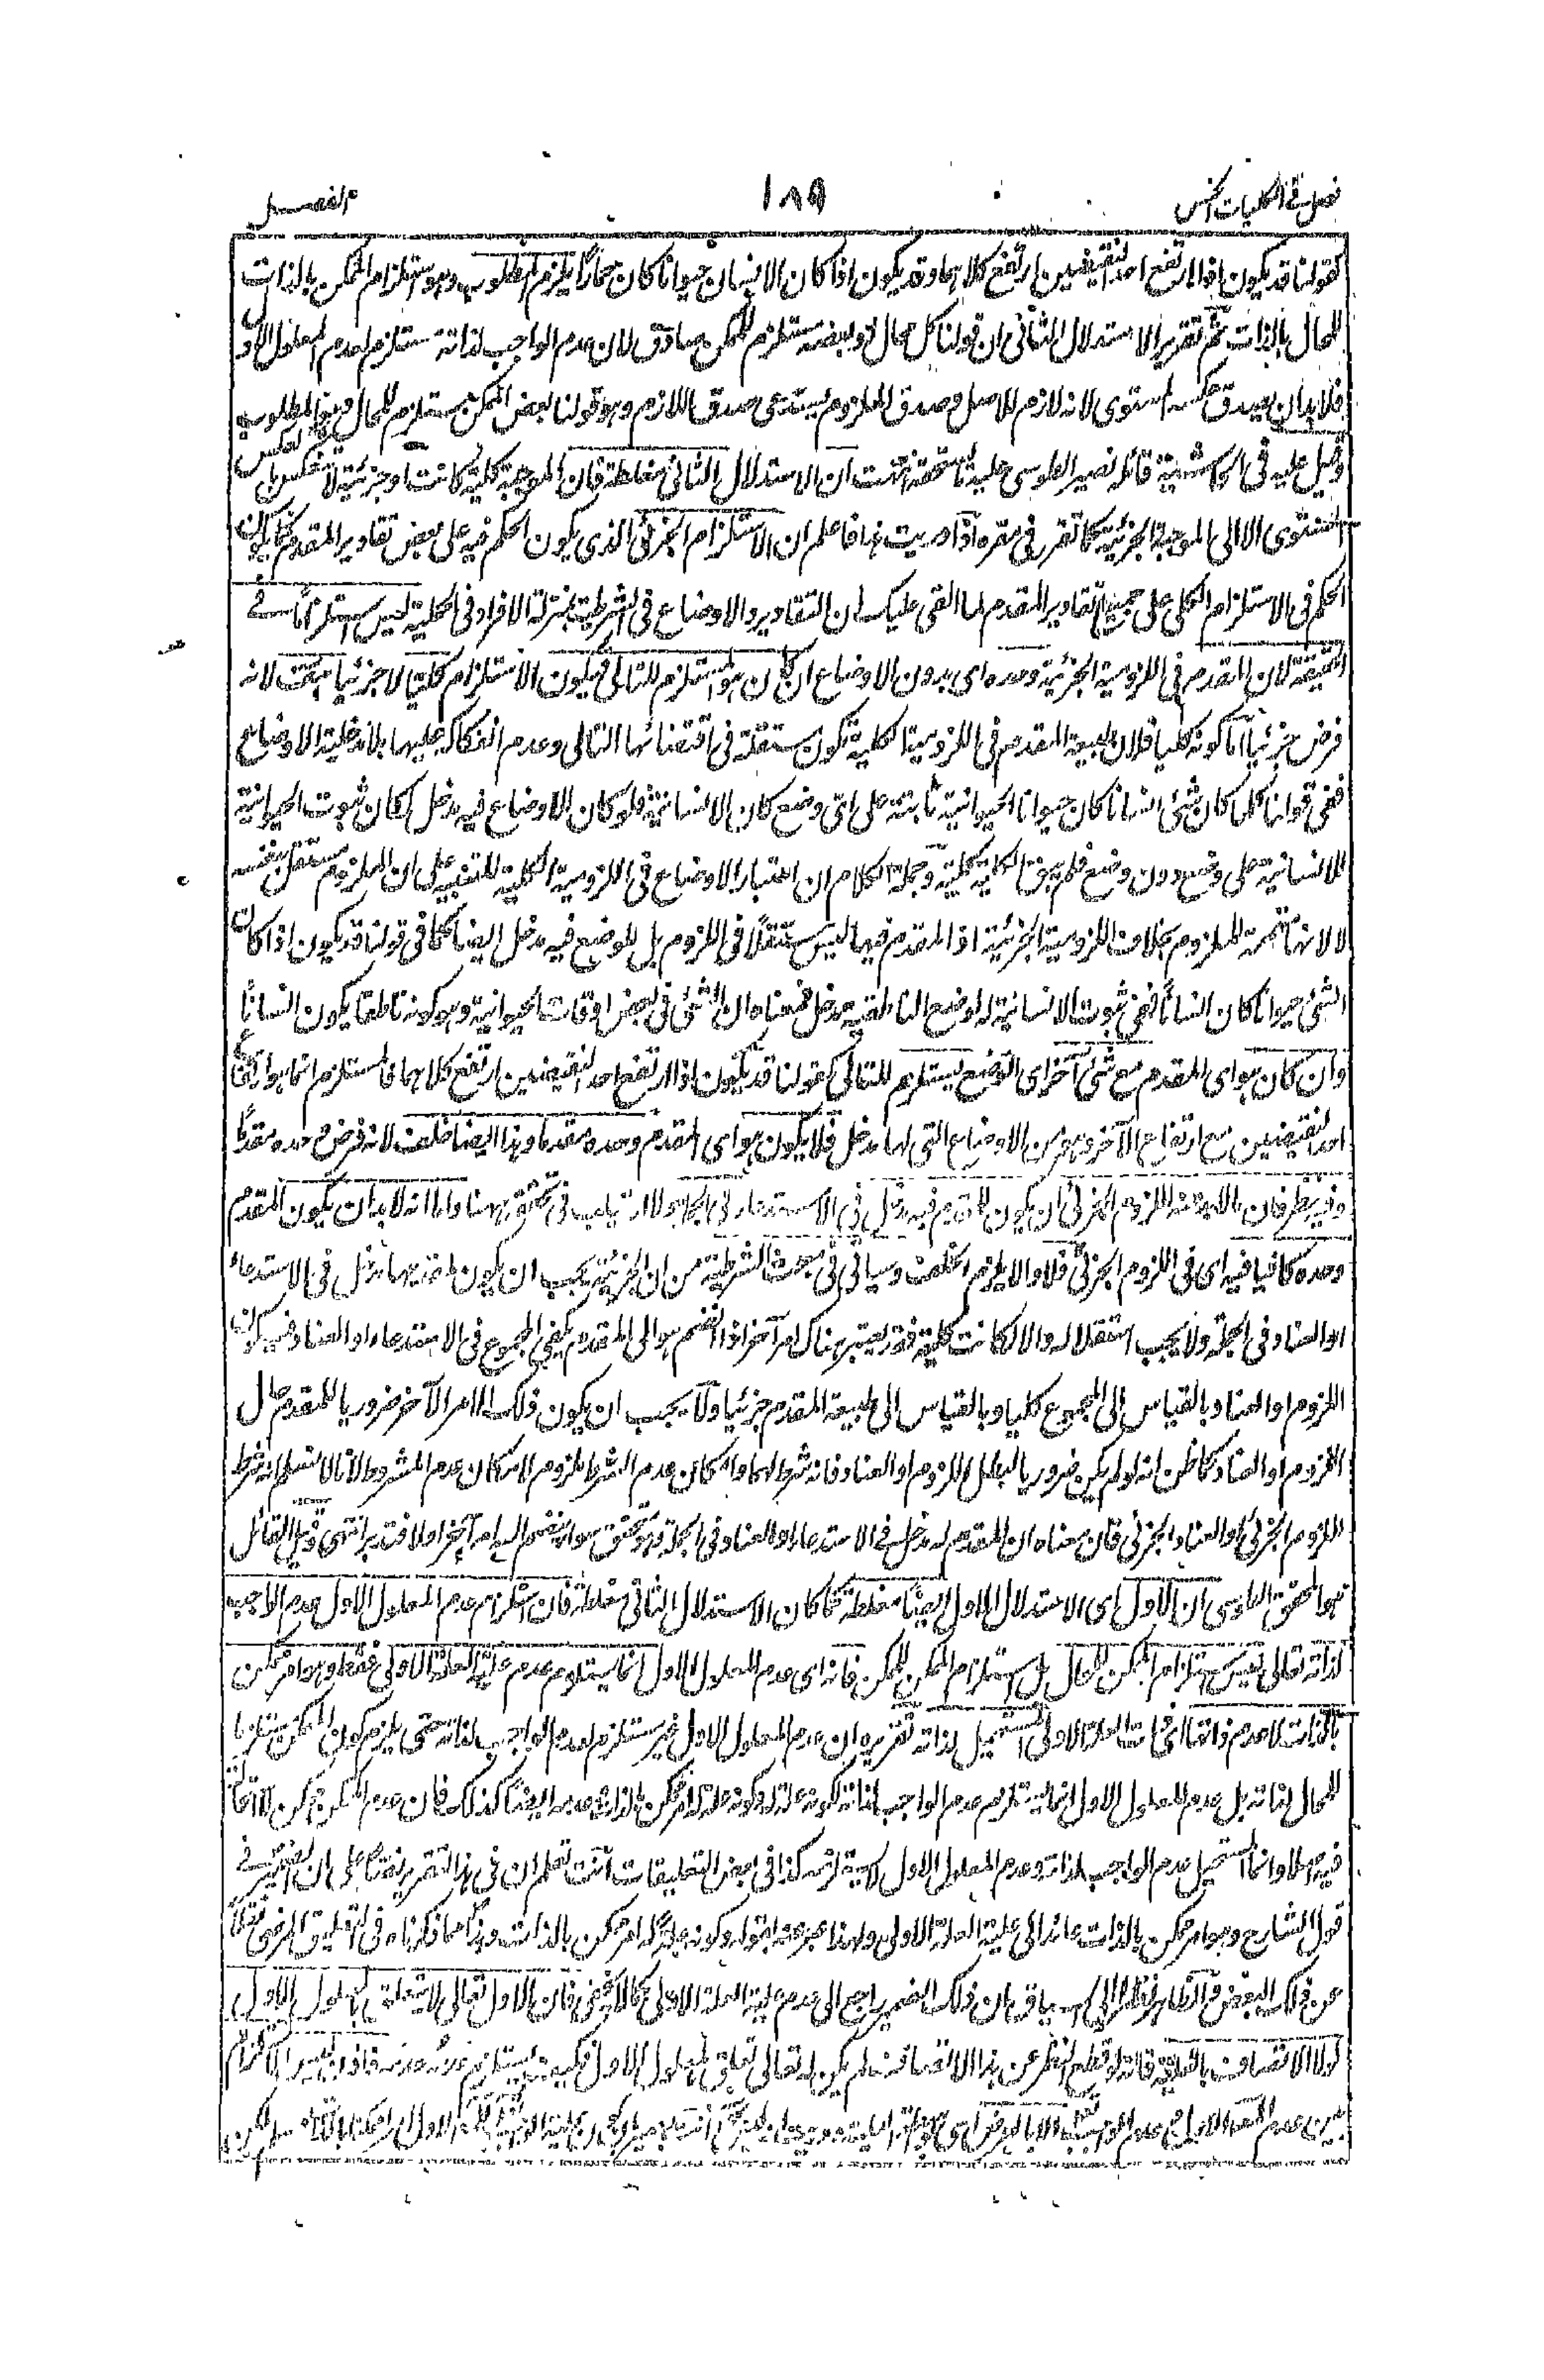 فصل فى الكليات الخمس
١٨٩
كقولنا قد يكون اذا ارتفع احد النقيضين ارتفع كلاهما وقد يكون اذا كان الانسان حيوانا كان حمارا يلزم المطلوب وهو استلزام الممكن بالذات
للمحال بالذات ثم تقرير الاستدلال الثانى ان قولنا كل محال او بعضه مستلزم للممكن صادق لان عدم الواجب لذاته مستلزم لعدم المعلول الاول
فلا بد ان يصدق عكسه المستوى لانه لازم للاصل وصدق الملزوم يستدعى صدق اللازم وهو قولنا بعض الممكن مستلزم للمحال وهو المطلوب
وقيل عليه فى الحاشية قائله نصير الطوسى عليه ما يستحقه انتهت ان الاستدلال الثانى مغالطة فان الموجبة كلية كانت او جزئية لا تنعكس بالعكس
المستوى الا الى الموجبة الجزئية كما تقرر فى مقره اذا دريت هذا فاعلم ان الاستلزام الجزئى الذى يكون الحكم فيه على بعض تقادير المقدم كما يكون
الحكم فى الاستلزام الكلى على جميع تقادير المقدم لما القى عليك ان التقادير والاوضاع فى الشرطية بمنزلة الافراد فى الحملية ليس استلزاما فى
الحقيقة لان المقدم فى اللزومية الجزئية وحده اى بدون الاوضاع ان كان هو المستلزم للتالى فيكون الاستلزام كليا لا جزئيا هف لانه
فرض جزئيا اما كونه كليا فلان طبيعة المقدم فى اللزومية الكلية تكون مستقلة فى اقتضائها التالى وعدم انفكاكه عليها بلا مدخلية الاوضاع
ففى قولنا كلما كان شئ انسانا كان حيوانا الحيوانية ثابتة على اى وضع كان الانسانية فلو كان الاوضاع فيه مدخل لكان ثبوت الحيوانية
للانسانية على وضع دون وضع فلم يبق الكلية كلية وجملة الكلام ان اعتبار الاوضاع فى اللزومية الكلية للتنبيه على ان الملزوم مستقل بنفسه
لا لانها تتمة الملزوم بخلاف اللزومية الجزئية اذ المقدم فيها ليس مستقلا فى اللزوم بل للوضع فيه مدخل ايضا كما فى قولنا قد يكون اذا كان
الشئ حيوانا كان انسانا ففى ثبوت الانسانية له لوضع الناطقية مدخل فمعناه ان الشئ فى بعض اوقات الحيوانية وهو كونه ناطقا يكون انسانا
وان كان هو اى المقدم مع شئ آخر اى الوضع يستلزم للتالى كقولنا قد يكون اذا ارتفع احد النقيضين ارتفع كلاهما فالمستلزم انما هو ارتفاع
احد النقيضين مع ارتفاع الآخر وهو من الاوضاع التى لها مدخل فلا يكون هو اى المقدم وحده مقدما وهذا ايضا خلف لانه فرض وحده مقدما
وفيه نظر فان ما لا بد منه اللزوم الجزئى ان يكون للمقدم فيه دخل فى الاستدعاء فى الجملة ولا ارتياب فى تحققه ههنا واما انه لا بد ان يكون المقدم
وحده كافيا فيه اى فى اللزوم الجزئى فلا والا يلزم الخلف وسيأتى فى مبحث الشرطية من ان الجزئية يجب ان يكون لمقدمها مدخل فى الاستدعاء
او العناد فى الجملة ولا يجب استقلاله والا لكانت كلية فقد يعتبر هناك امر آخر اذا انضم هو الى المقدم يكفى المجموع فى الاستدعاء او العناد فيكون
اللزوم او العناد بالقياس الى المجموع كليا وبالقياس الى طبيعة المقدم جزئيا ولا يجب ان يكون ذلك الامر الآخر ضروريا للمقدم حال
اللزوم او العناد كما ظن انه لو لم يكن ضروريا لبطل اللزوم او العناد فانه شرط لهما وامكان عدم الشرط ملزوم لامكان عدم المشروط لانا لا نسلم انه شرط
اللزوم الجزئى او العناد الجزئى فان معناه ان المقدم له مدخل فى الاستدعاء او العناد فى الجملة وهو متحقق سواء ينضم اليه امر آخر او لا فتدبر انتهى وقيل القائل
هو المحقق الطوسى ان الاول اى الاستدلال الاول ايضا مغالطة كما كان الاستدلال الثانى مغالطة فان استلزام عدم المعلول الاول عدم الواجب
لذاته تعالى ليس استلزام الممكن للمحال بل استلزام الممكن للممكن فانه اى عدم المعلول الاول انما يستلزم عدم علية العلة الاولى فقط وهو امر ممكن
بالذات لا عدم ذاتها اى ذات العلة الاولى المستحيل لذاته تقريره ان عدم المعلول الاول غير مستلزم لعدم الواجب لذاته حتى يلزم كون الممكن مستلزما
للمحال لذاته بل عدم المعلول الاول انما يستلزم عدم الواجب لذاته لكونه علة له وكونه علة له امر ممكن بالذات فعدمه ايضا كذلك فان عدم الممكن ممكن
فيه اصلا وانما المستحيل عدم الواجب لذاته وعدم المعلول الاول لا يستلزمه كذا فى بعض التعليقات انت تعلم ان فى هذا التقرير ان الضمير فى
قول الشارح وهو امر ممكن بالذات عائد الى علية العلة الاولى ولهذا عبر عنه بقوله وكونه علة له امر ممكن بالذات وهذا مما ذكرناه فى التعليق المرضى نقلا
عن ذلك البعض والظاهر نظرا الى السياق ان ذلك الضمير راجع الى عدم علية العلة الاولى كما لا يخفى فان الاول تعالى لا يتعلق بالمعلول الاول
لولا الاتصاف بالعلية فانه لو قطع النظر عن هذا الاتصاف لم يكن له تعالى تعلق بالمعلول الاول فكيف يستلزم عدمه عدمه فاذن ليس الاستلزام
بين عدم المعلول الاول وعدم الواجب الا بالعرض